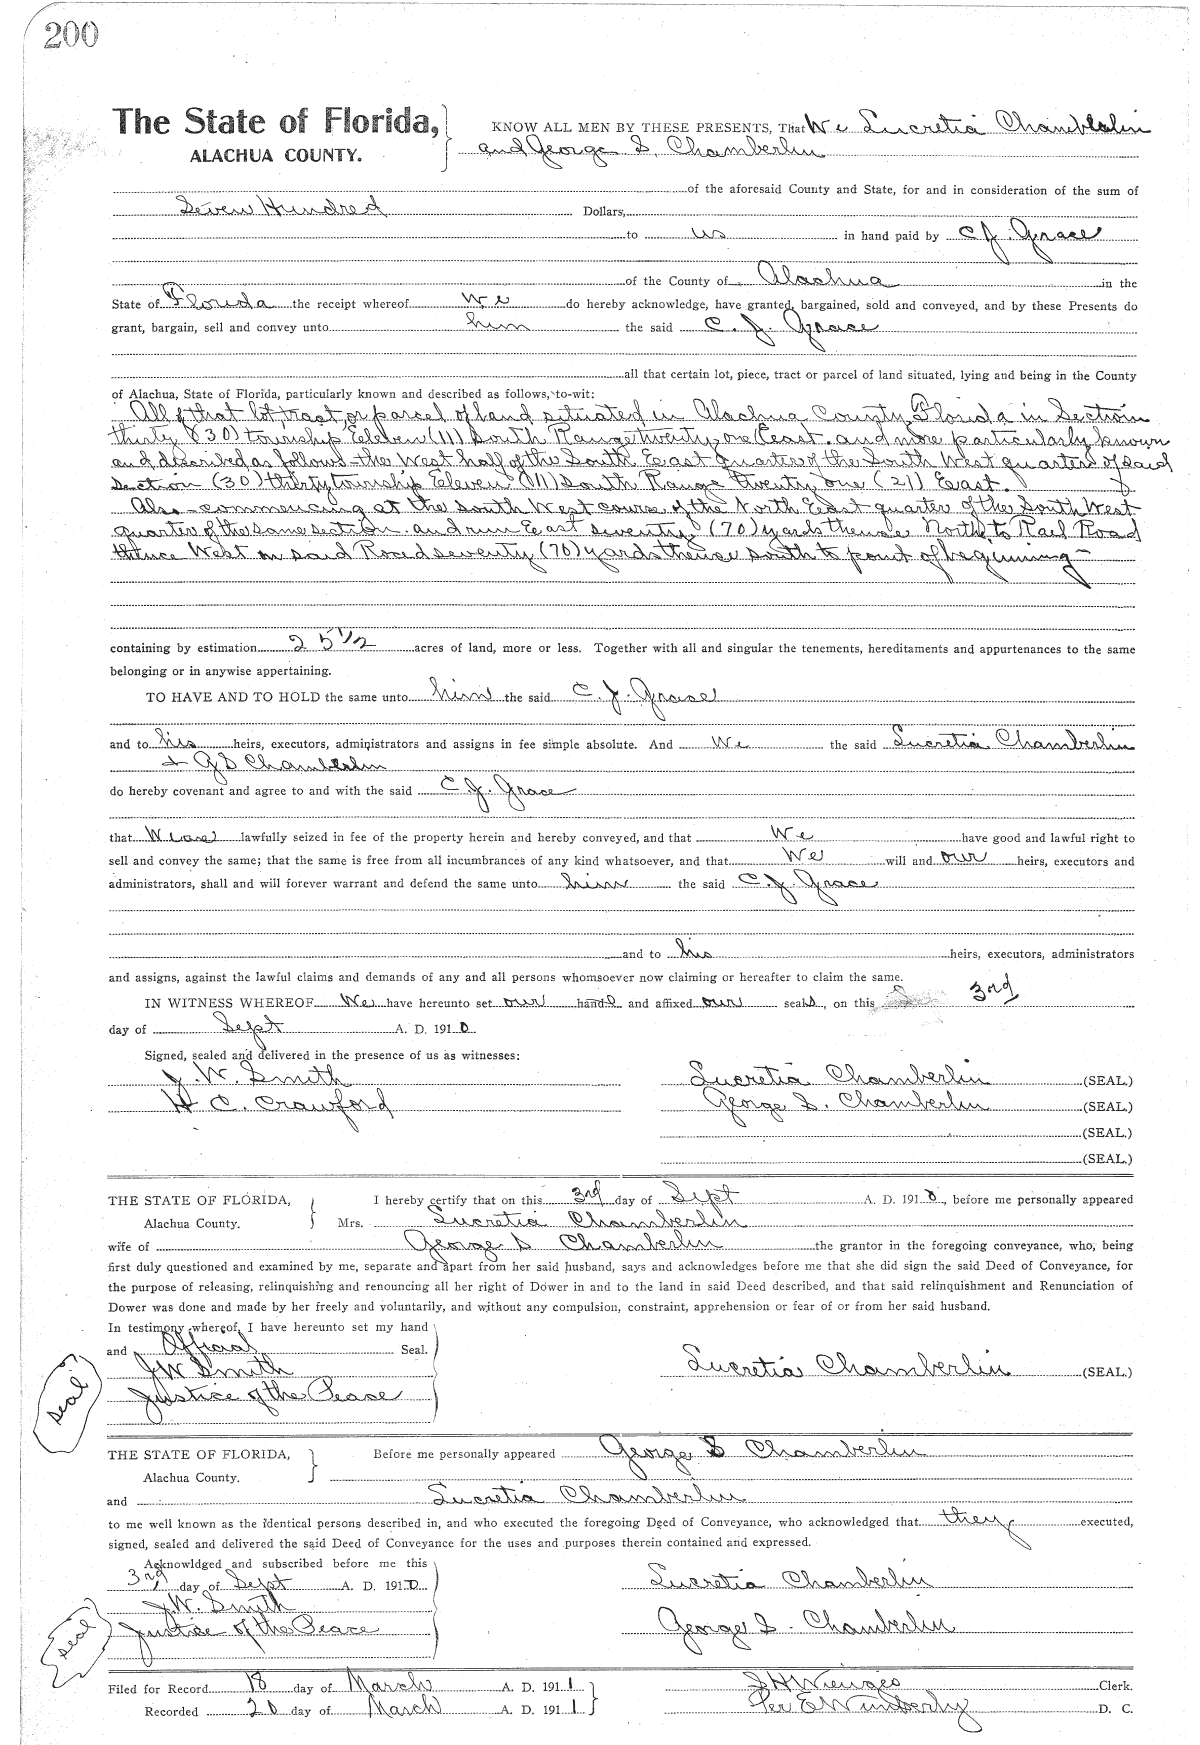 200
The State of Florida, KNOW ALL MEN BY THESE PRESENTS, That We Lucretia Chamberlin
ALACHUA COUNTY. and George S. Chamberlin
of the aforesaid County and State, for and in consideration of the sum of
Seven Hundred Dollars,
to us in hand paid by C J. Grace
of the County of Alachua in the
State of Florida the receipt whereof We do hereby acknowledge, have granted, bargained, sold and conveyed, and by these Presents do
grant, bargain, sell and convey unto him the said C. J. Grace
all that certain lot, piece, tract or parcel of land situated, lying and being in the County
of Alachua, State of Florida, particularly known and described as follows, to-wit:
All of that lot, tract, or parcel of land situated in Alachua County Florida in Section
thirty (30) township Eleven (11) South Range twenty one East. and more particularly known
and described as follows - the West half of the South East quarter of the South West quarter of said
Section (30) thirty township Eleven (11) South Range twenty one (21) East.
Also - commencing at the South West course of the North East quarter of the South West
quarter of the same section and run East seventy (70) yards thence North to Rail Road
thence West on said Road seventy (70) yards thence south to point of beginning -
containing by estimation 25 1/2 acres of land, more or less. Together with all and singular the tenements, hereditaments and appurtenances to the same
belonging or in anywise appertaining.
TO HAVE AND TO HOLD the same unto him the said C. J. Grace
and to his heirs, executors, administrators and assigns in fee simple absolute. And We the said Lucretia Chamberlin
+ G S Chamberlin
do hereby covenant and agree to and with the said C. J. Grace
that We are lawfully seized in fee of the property herein and hereby conveyed, and that We have good and lawful right to
sell and convey the same; that the same is free from all incumbrances of any kind whatsoever, and that We will and our heirs, executors and
administrators, shall and will forever warrant and defend the same unto him the said C. J. Grace
and to his heirs, executors, administrators
and assigns, against the lawful claims and demands of any and all persons whomsoever now claiming or hereafter to claim the same.
IN WITNESS WHEREOF We have hereunto set our hands and affixed our seals, on this 3rd
day of Sept A. D. 1910
Signed, sealed and delivered in the presence of us as witnesses:
J. W. Smith Lucretia Chamberlin (SEAL.)
H C. Crawford George S. Chamberlin (SEAL.)
(SEAL.)
(SEAL.)
THE STATE OF FLORIDA, I hereby certify that on this 3rd day of Sept A. D. 1910, before me personally appeared
Alachua County. Mrs. Lucretia Chamberlin
wife of George S Chamberlin the grantor in the foregoing conveyance, who, being
first duly questioned and examined by me, separate and apart from her said husband, says and acknowledges before me that she did sign the said Deed of Conveyance, for
the purpose of releasing, relinquishing and renouncing all her right of Dower in and to the land in said Deed described, and that said relinquishment and Renunciation of
Dower was done and made by her freely and voluntarily, and without any compulsion, constraint, apprehension or fear of or from her said husband.
In testimony whereof, I have hereunto set my hand
and Official Seal.
J W Smith Lucretia Chamberlin (SEAL)
Justice of the Peace
seal
THE STATE OF FLORIDA, Before me personally appeared George S Chamberlin
Alachua County.
and Lucretia Chamberlin
to me well known as the identical persons described in, and who executed the foregoing Deed of Conveyance, who acknowledged that they executed,
signed, sealed and delivered the said Deed of Conveyance for the uses and purposes therein contained and expressed.
Acknowldged and subscribed before me this
3rd day of Sept A. D. 1910 Lucretia Chamberlin
J. W. Smith
Justice of the Peace George S. Chamberlin
seal
Filed for Record 18 day of March A. D. 1911 S H Wienges Clerk.
Recorded 20 day of March A. D. 1911 Per E Wimberly D. C.